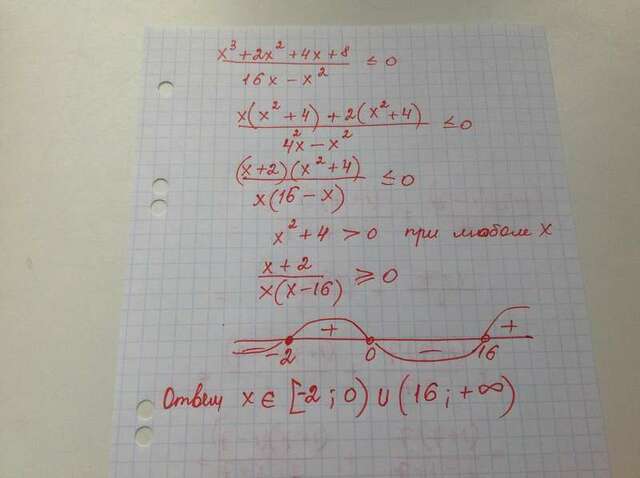 x³ + 2x² + 4x + 8 / 16x − x² ≤ 0
x(x² + 4) + 2(x² + 4) / 4²x − x² ≤ 0
(x + 2)(x² + 4) / x(16 − x) ≤ 0
x² + 4 > 0 при любом x
x + 2 / x(x − 16) ≥ 0
+ +
− −
-2 0 16
Ответ x ∈ [-2 ; 0) ∪ (16 ; +∞)